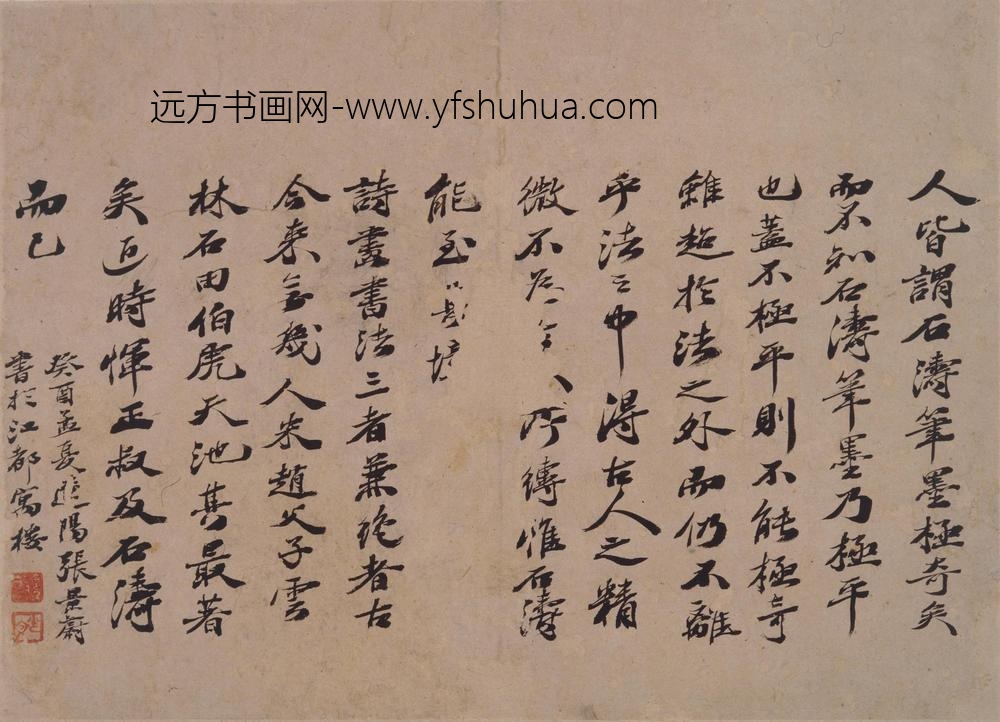 远方书画网-www.yfshuhua.com
人皆謂石濤筆墨極奇矣
而不知石濤筆墨乃極平
也蓋不極平則不能極奇
雖超於法之外而仍不離
乎法之中得古人之精
微不為古人所縛惟石濤
能至
詩畫書法三者兼絶者古
今來無幾人米趙父子雲
林石田伯虎天池其最著
矣近時惲正叔及石濤
而已
癸酉孟夏 陽張景蔚
書於江都寓樓